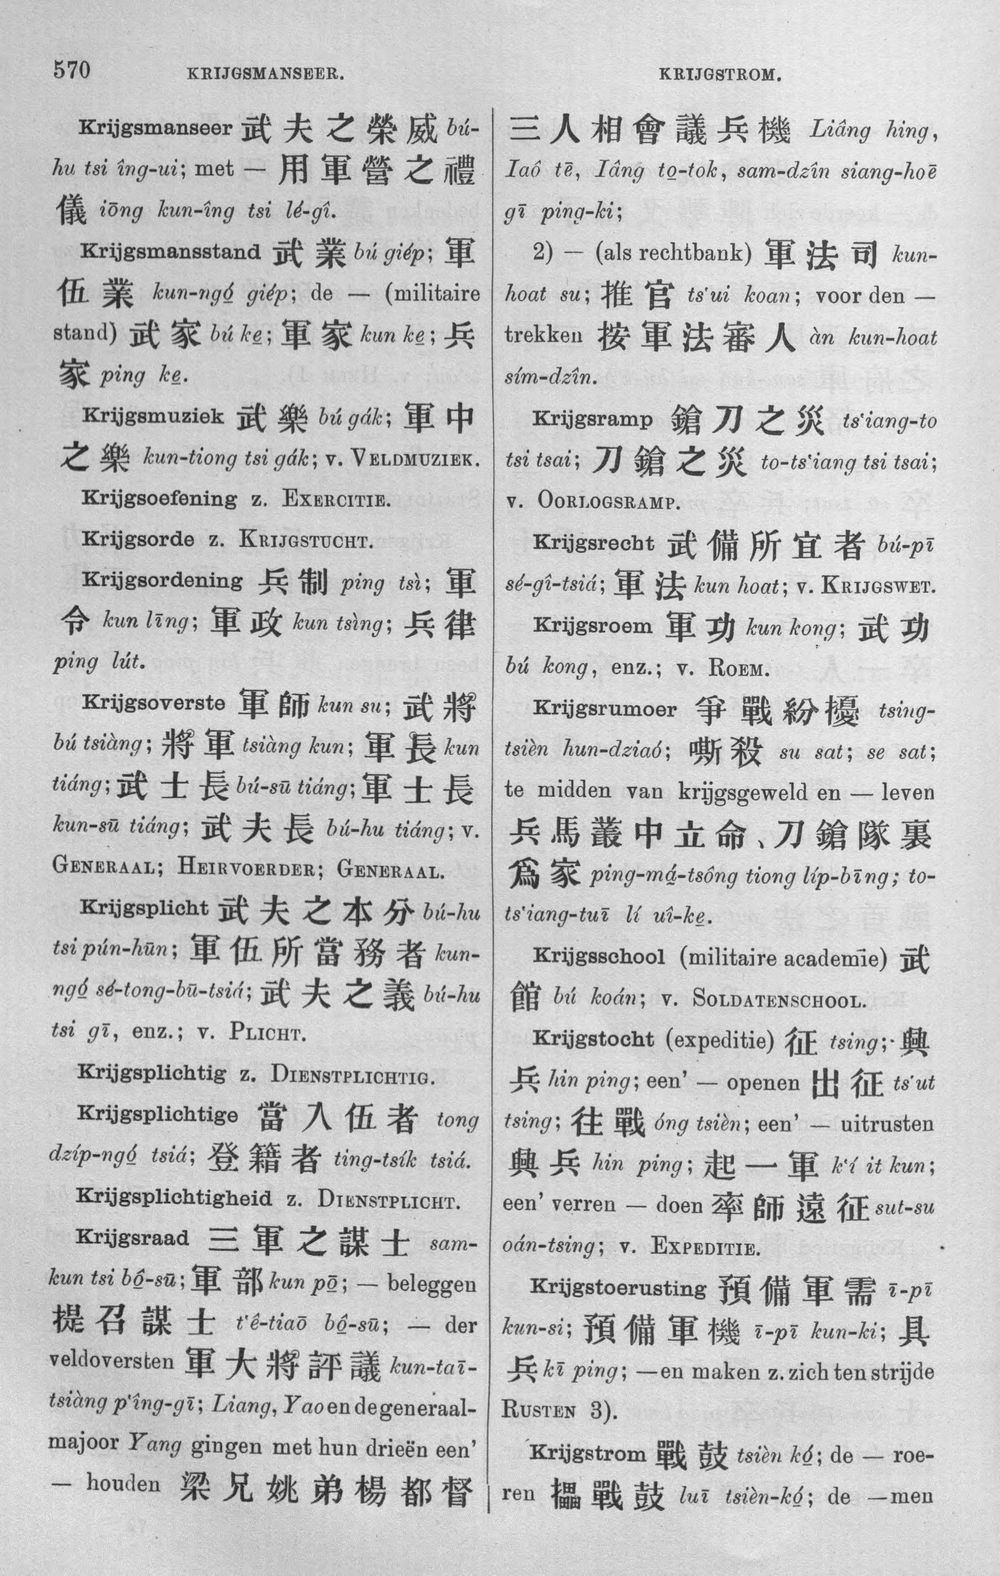 570
KRIJGSMANSEER.
KRIJGSTROM.
Krijgsmanseer 武夫之榮威 bú-
hu tsi îng-ui; met — 用軍營之禮
儀 iōng kun-îng tsi lé-gî.
Krijgsmansstand 武業 bú giép; 軍
伍業 kun-ngó̱ giép; de — (militaire
stand) 武家 bú ke̱; 軍家 kun ke̱; 兵
家 ping ke̱.
Krijgsmuziek 武樂 bú gák; 軍中
之樂 kun-tiong tsi gák; v. VELDMUZIEK.
Krijgsoefening z. EXERCITIE.
Krijgsorde z. KRIJGSTUCHT.
Krijgsordening 兵制 ping tsì; 軍
令 kun līng; 軍政 kun tsìng; 兵律
ping lút.
Krijgsoverste 軍師 kun su; 武將
bú tsiàng; 將軍 tsiàng kun; 軍長 kun
tiáng; 武士長 bú-sū tiáng; 軍士長
kun-sū tiáng; 武夫長 bú-hu tiáng; v.
GENERAAL; HEIRVOERDER; GENERAAL.
Krijgsplicht 武夫之本分 bú-hu
tsi pún-hūn; 軍伍所當務者 kun-
ngó̱ sé-tong-bū-tsiá; 武夫之義 bú-hu
tsi gī, enz.; v. PLICHT.
Krijgsplichtig z. DIENSTPLICHTIG.
Krijgsplichtige 當入伍者 tong
dzíp-ngó̱ tsiá; 登籍者 ting-tsík tsiá.
Krijgsplichtigheid z. DIENSTPLICHT.
Krijgsraad 三軍之謀士 sam-
kun tsi bô̱-sū; 軍部 kun pō̱; — beleggen
提召謀士 t'ê-tiaō bô̱-sū; — der
veldoversten 軍大將評議 kun-taī-
tsiàng p'îng-gī; Liang, Yao en de generaal-
majoor Yang gingen met hun drieën een'
— houden 梁兄姚弟楊都督
三人相會議兵機 Liâng hing,
Iaô tē, Iâng to̱-tok, sam-dzîn siang-hoē
gī ping-ki;
2) — (als rechtbank) 軍法司 kun-
hoat su; 推官 ts'ui koan; voor den —
trekken 按軍法審人 àn kun-hoat
sím-dzîn.
Krijgsramp 鎗刀之災 ts'iang-to
tsi tsai; 刀鎗之災 to-ts'iang tsi tsai;
v. OORLOGSRAMP.
Krijgsrecht 武備所宜者 bú-pī
sé-gî-tsiá; 軍法 kun hoat; v. KRIJGSWET.
Krijgsroem 軍功 kun kong; 武功
bú kong, enz.; v. ROEM.
Krijgsrumoer 爭戰紛擾 tsing-
tsièn hun-dziaó; 嘶殺 su sat; se sat;
te midden van krijgsgeweld en — leven
兵馬叢中立命、刀鎗隊裏
爲家 ping-má̱-tsông tiong líp-bīng; to-
ts'iang-tuī lí uî-ke̱.
Krijgsschool (militaire academie) 武
館 bú koán; v. SOLDATENSCHOOL.
Krijgstocht (expeditie) 征 tsing; 興
兵 hin ping; een' — openen 出征 ts'ut
tsing; 往戰 óng tsièn; een' — uitrusten
興兵 hin ping; 起一軍 k'í it kun;
een' verren — doen 率師遠征 sut-su
oán-tsing; v. EXPEDITIE.
Krijgstoerusting 預備軍需 ī-pī
kun-si; 預備軍機 ī-pī kun-ki; 具
兵 kī ping; — en maken z. zich ten strijde
RUSTEN 3).
Krijgstrom 戰鼓 tsièn kó̱; de — roe-
ren 擂戰鼓 luī tsièn-kó̱; de — men